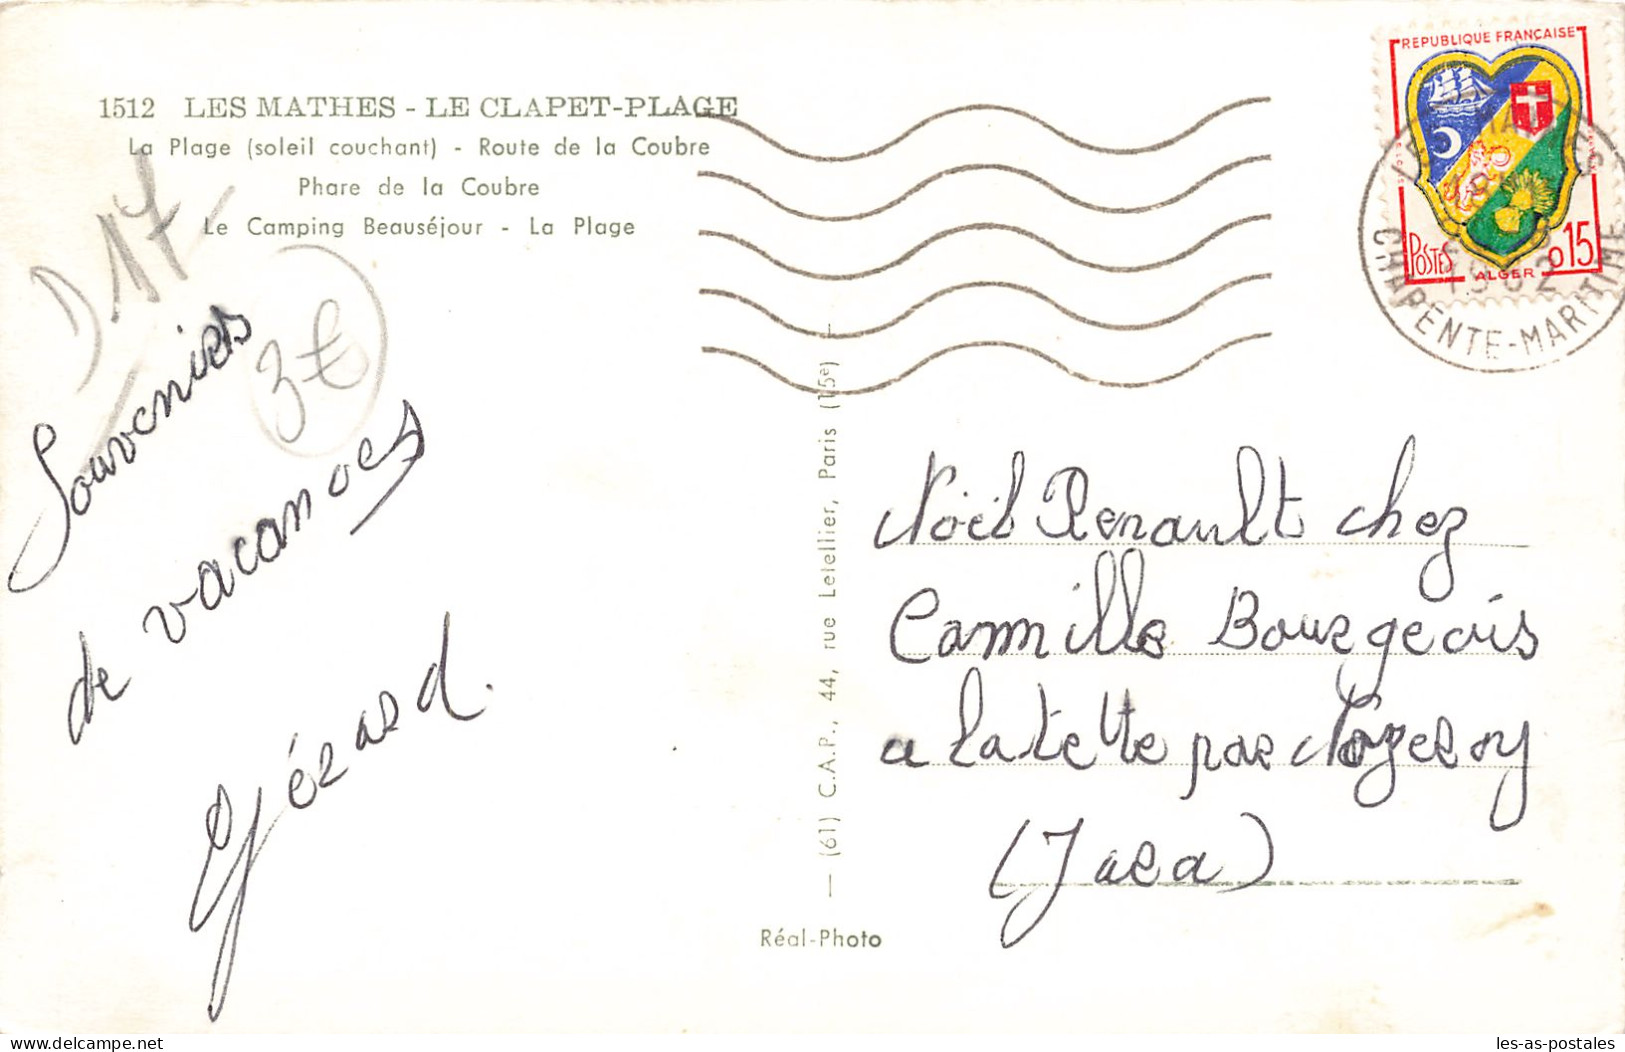 1512 LES MATHES - LE CLAPET-PLAGE
La Plage (soleil couchant) - Route de la Coubre
Phare de la Coubre
Le Camping Beauséjour - La Plage
D17
3€
Souvenirs
de vacances
Gérard.
— (61) C.A.P., 44, rue Letellier, Paris (15e) —
Réal-Photo
REPUBLIQUE FRANÇAISE
POSTES
ALGER
0,15
CHARENTE-MARITIME
1962
Noël Renault chez
Cammille Bourgeois
a latette par Nozeroy
(Jura)
les-as-postales